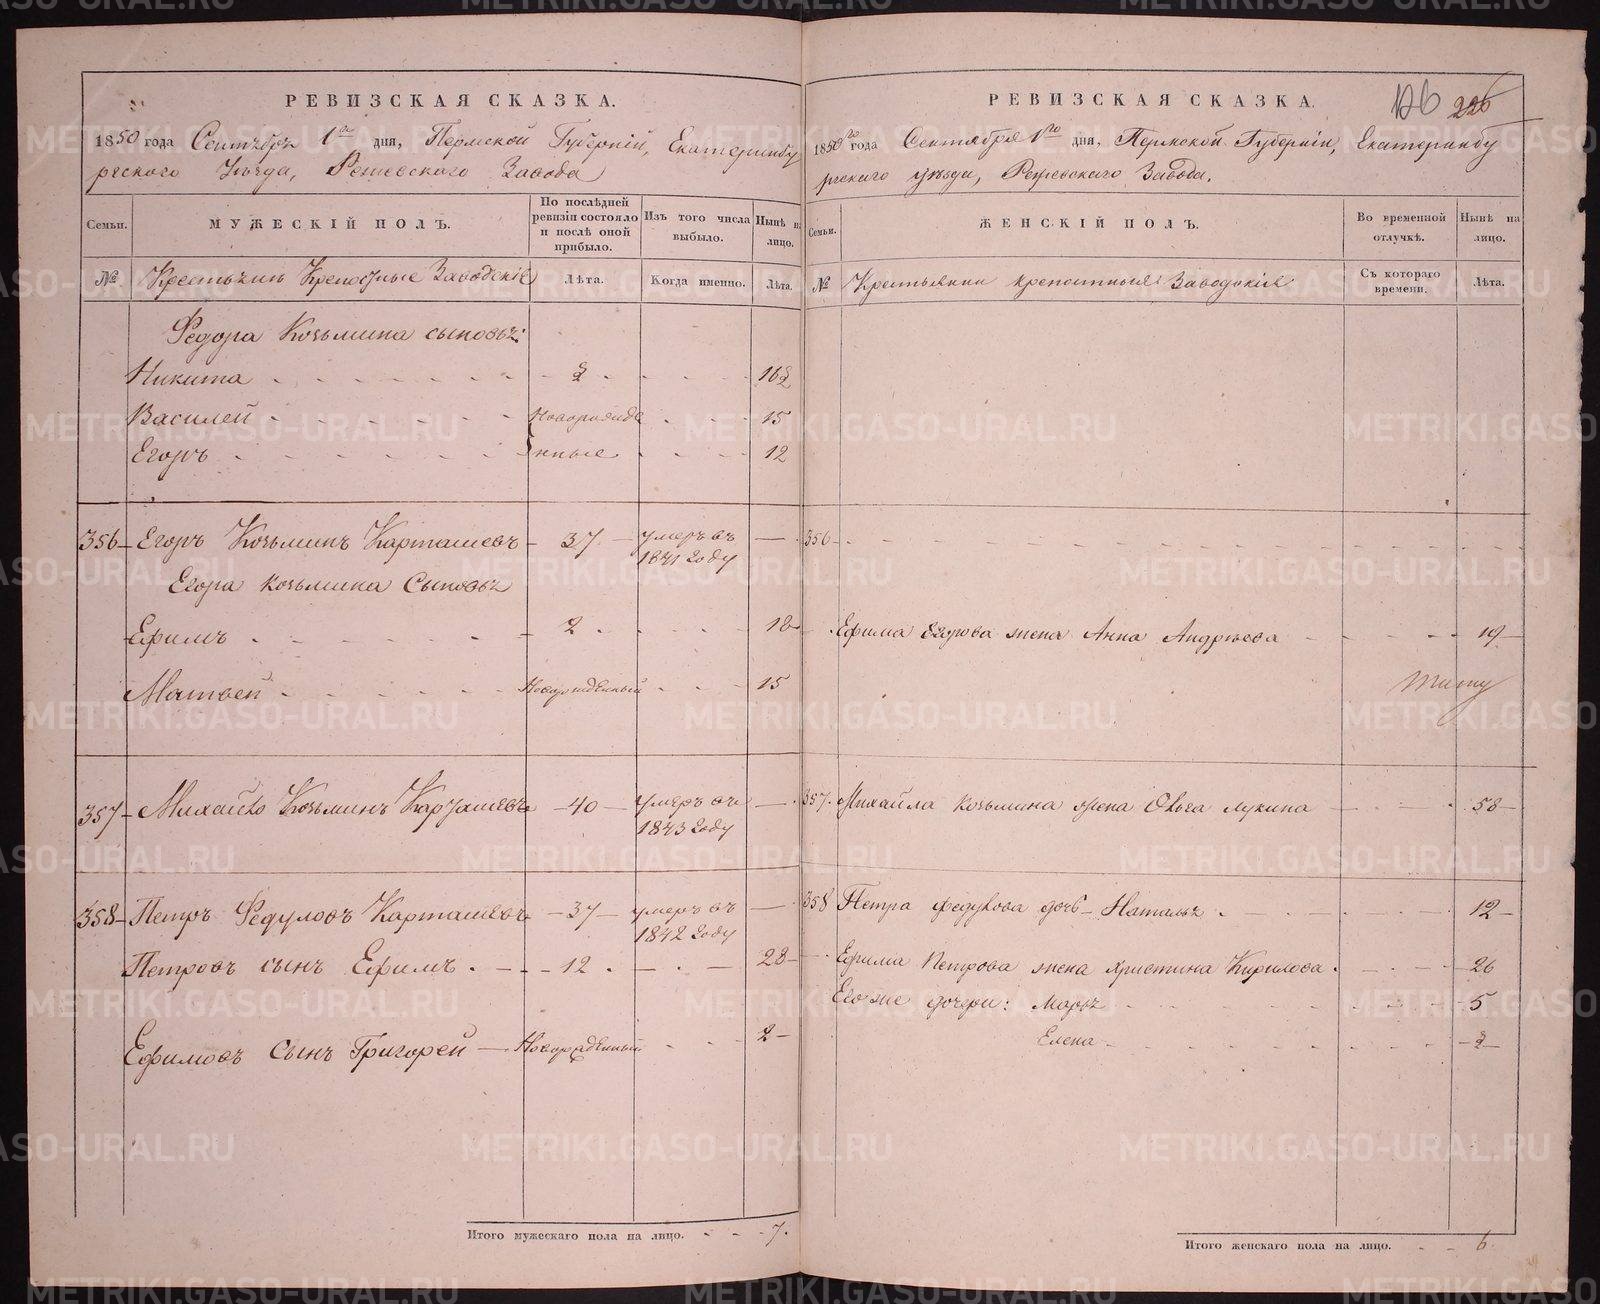 РЕВИЗСКАЯ СКАЗКА.
1850 года Сентября 1го дня, Пермской Губерній, Екатеринбу
ргскаго Уѣзда, Режевского Завода
Семьи.
МУЖЕСКІЙ ПОЛЪ.
По послѣдней ревизіи состояло и послѣ оной прибыло.
Изъ того числа выбыло.
Нынѣ на лицо.
№ Крестьянъ Крепостные Заводскіе
Лѣта.
Когда именно.
Лѣта.
Федора Козьмина сыновья:
Никита 2 16½
Василей Новорожде 15
Егоръ нные 12
356 Егоръ Козьминъ Карташевъ 37 умеръ въ 1841 году
Егора Козьмина Сыновья
Ефимъ 2 18
Матвей Новорожденный 15
357 Михайло Козьминъ Карташевъ 40 умеръ въ 1843 году
358 Петръ Федуловъ Карташевъ 37 умеръ въ 1842 году
Петровъ сынъ Ефимъ 12 28
Ефимовъ сынъ Григорей Новорожденный 2
Итого мужескаго пола на лицо. 7.
226
РЕВИЗСКАЯ СКАЗКА.
1850го года Сентября 1го дня, Пермской Губерніи, Екатеринбу
ргскаго уѣзда, Режевскаго Завода.
Семьи.
ЖЕНСКІЙ ПОЛЪ.
Во временной отлучкѣ.
Нынѣ на лицо.
№ Крестьянки крепостныя Заводскія
Съ котораго времени.
Лѣта.
356
Ефима Егорова жена Анна Андрѣева 19
357 Михайла Козьмина жена Ольга Лукина 58
358 Петра Федулова дочь Наталья 12
Ефима Петрова жена Христина Кирилова 26
Его же дочери: Марья 5
Елена 2
Итого женскаго пола на лицо. 6
METRIKI.GASO-URAL.RU